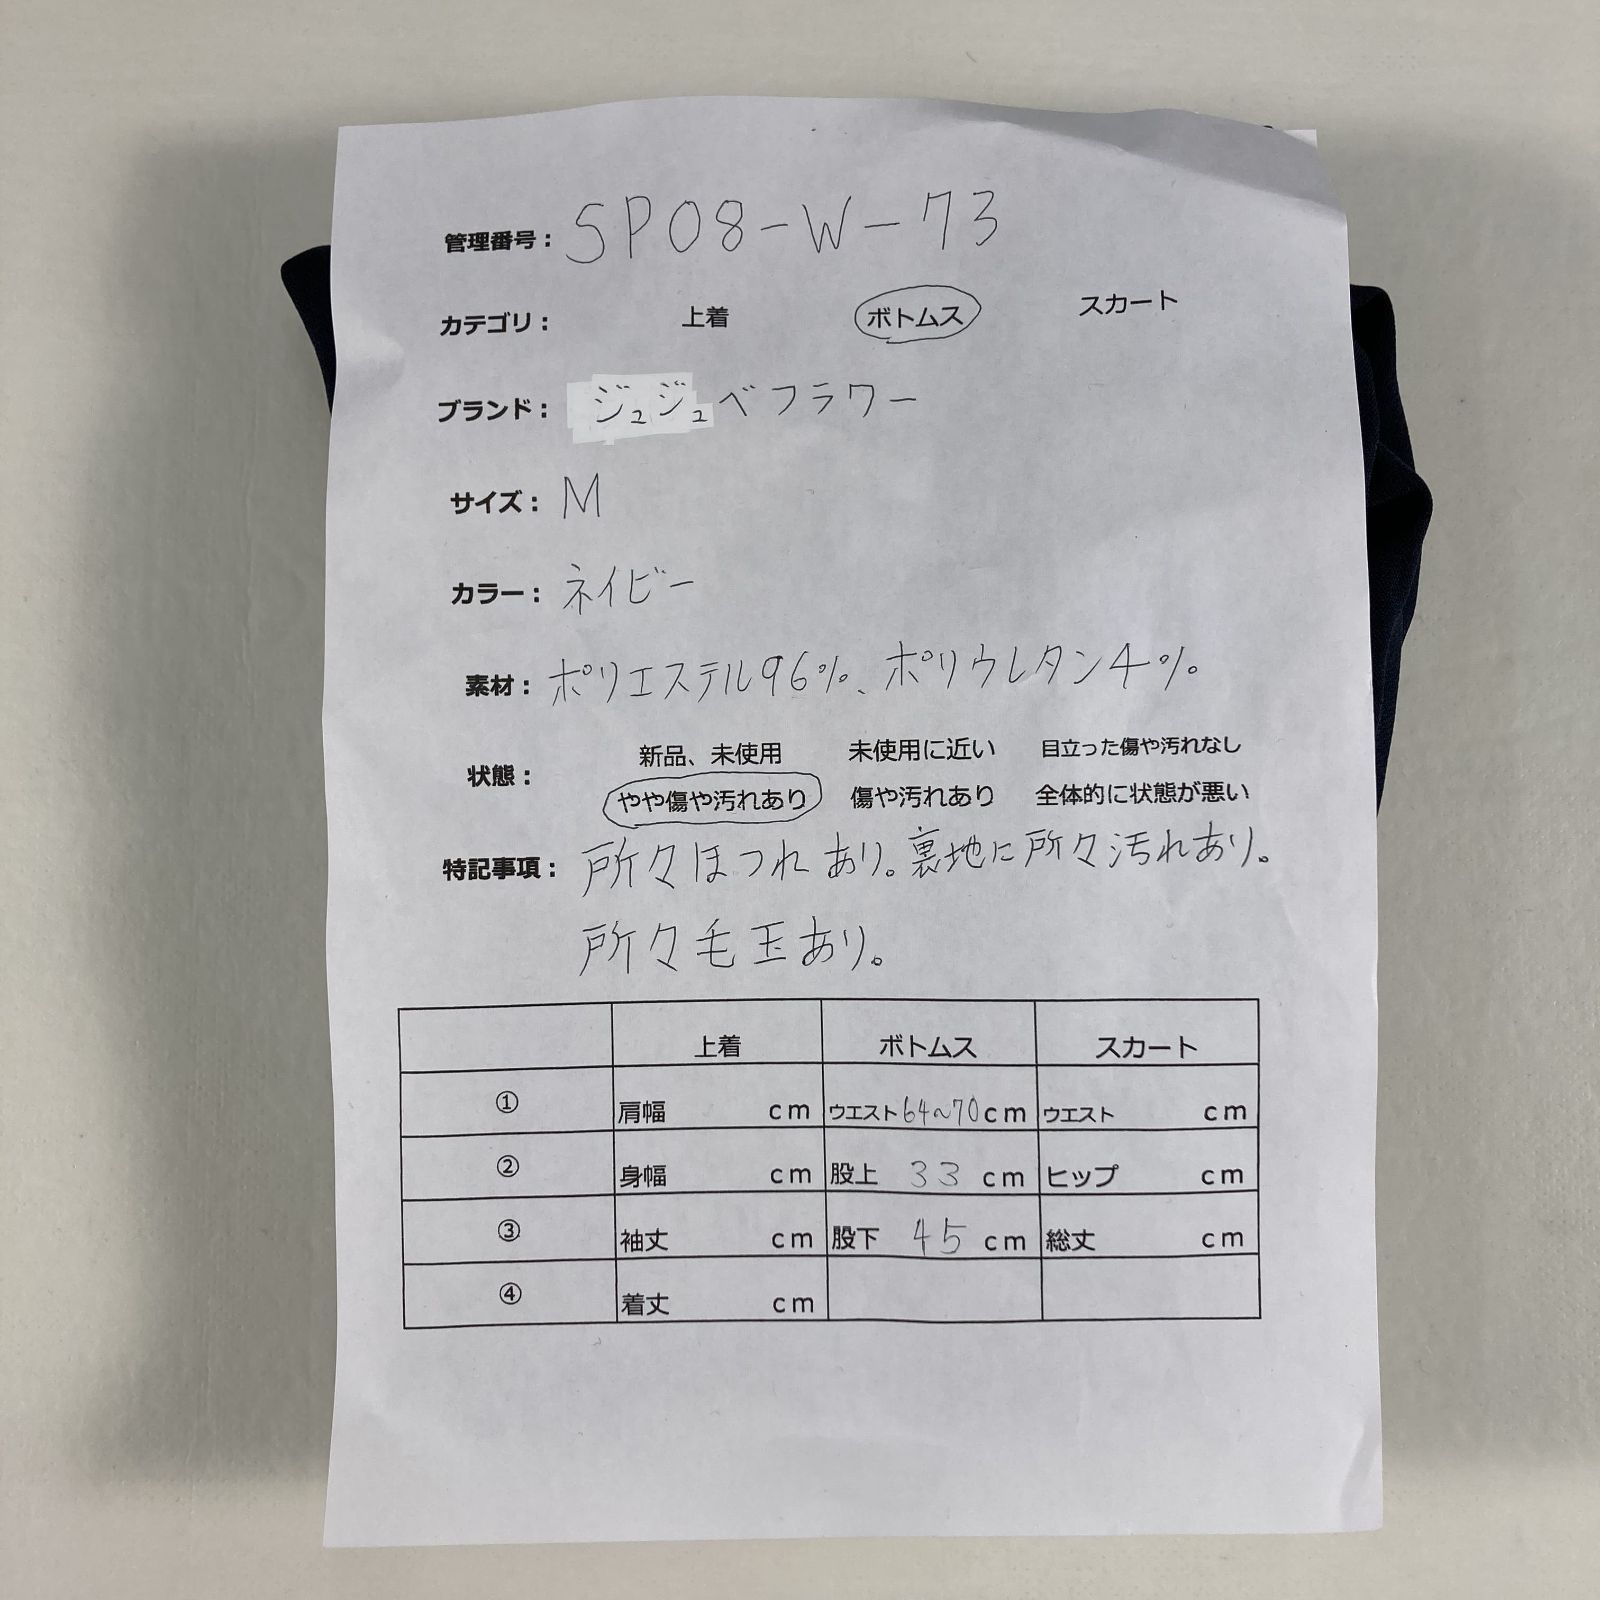 管理番号： SP08-W-73
カテゴリ： 上着 ボトムス スカート
ブランド： ジュジュベフラワー
サイズ： M
カラー： ネイビー
素材： ポリエステル96%、ポリウレタン4%
状態： 新品、未使用 未使用に近い 目立った傷や汚れなし
やや傷や汚れあり 傷や汚れあり 全体的に状態が悪い
特記事項： 所々ほつれあり。裏地に所々汚れあり。
所々毛玉あり。
上着 ボトムス スカート
① 肩幅 cm ウエスト 64~70 cm ウエスト cm
② 身幅 cm 股上 33 cm ヒップ cm
③ 袖丈 cm 股下 45 cm 総丈 cm
④ 着丈 cm